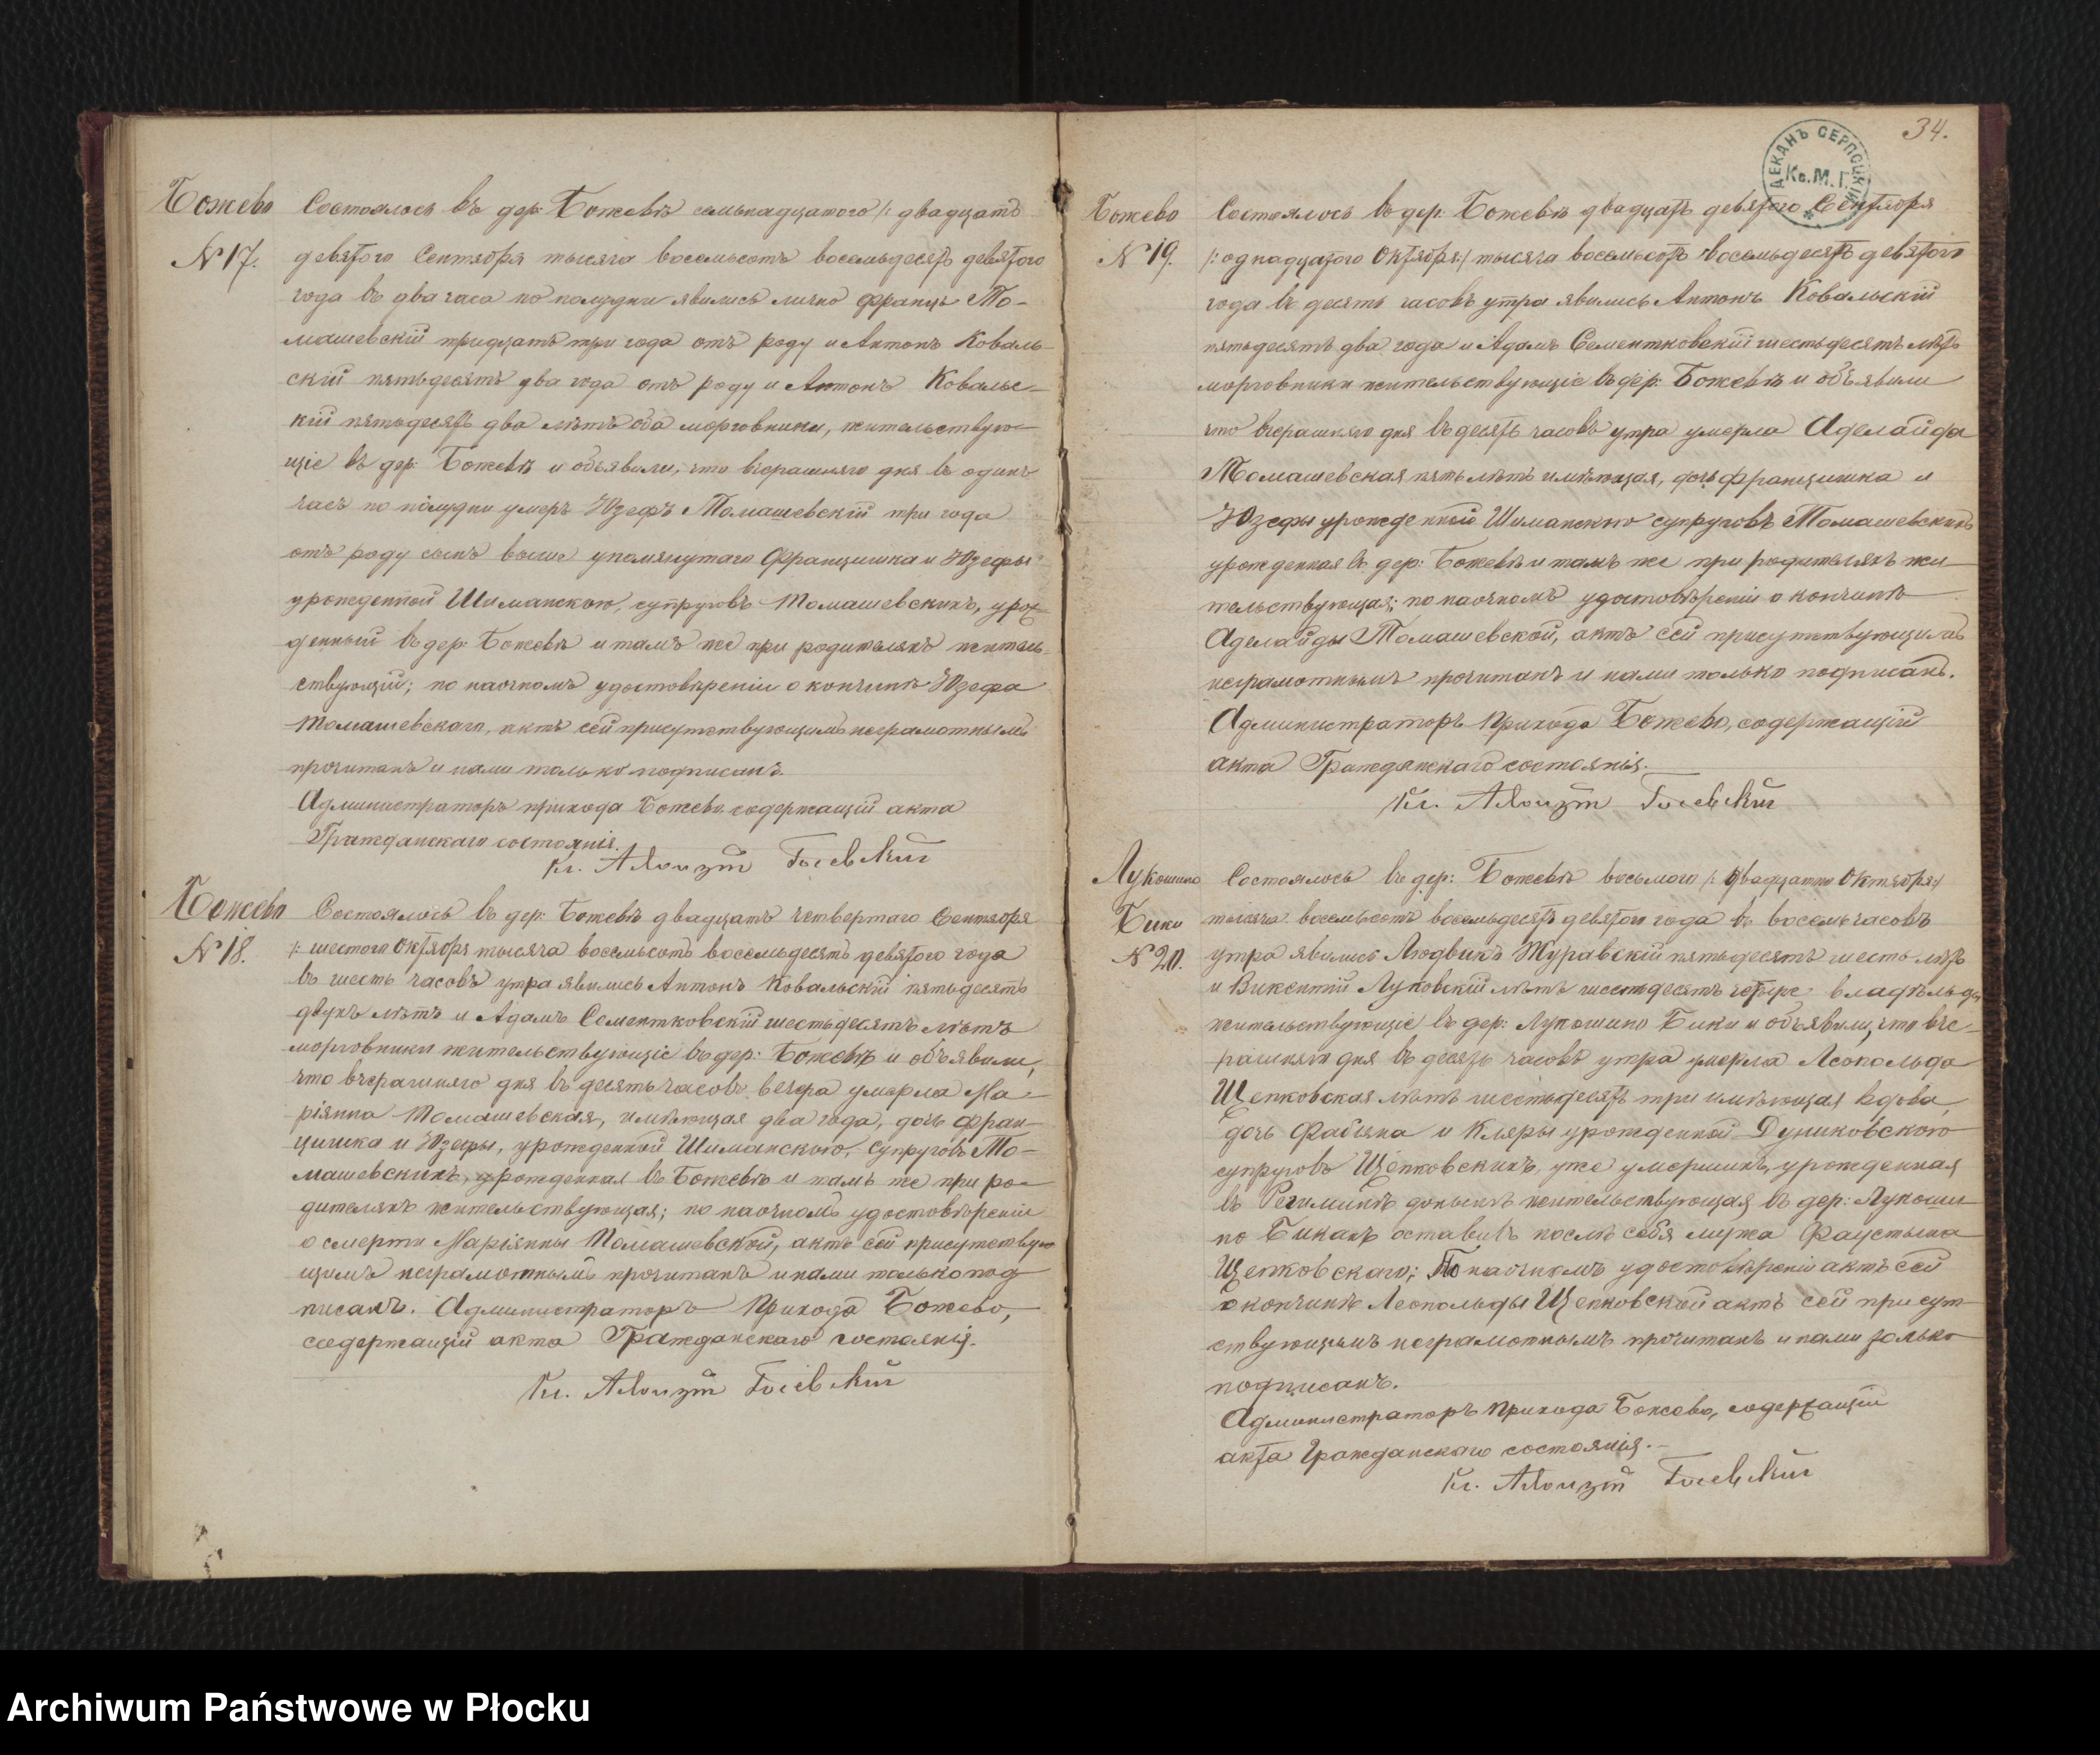 Божево
№ 17.
Состоялось въ дер: Божевѣ семьнадцатого /: двадцать
девятого Сентября тысяча восемьсотъ восемьдесятъ девятого
года въ два часа по полудни явились лично Францъ То-
машевскій тридцать три года отъ роду и Антонъ Коваль-
скій пятьдесятъ два года отъ роду и Антонъ Ковальс-
кій пятьдесятъ два лѣтъ оба морговники, жительствую-
щіе въ дер: Божевѣ и объявили, что вчерашняго дня въ одинъ
часъ по полудни умеръ Юзефъ Томашевскій три года
отъ роду сынъ выше упомянутаго Францишка и Юзефы
урожденной Шиманскою, супруговъ Томашевскихъ, урож
денный въ дер: Божевѣ и тамъ же при родителяхъ житель-
ствующій; по наочномъ удостовѣреніи о кончинѣ Юзефа
Томашевскаго, актъ сей присутствующимъ неграмотнымъ
прочитанъ и нами только подписанъ.
Администраторъ прихода Божево, содержащій акта
Гражданскаго состоянія.
Кс. Алоизій Госевскій
Божево
№ 18.
Состоялось въ дер: Божевѣ двадцать четвертаго Сентября
/: шестого Октября тысяча восемьсотъ восемьдесятъ девятого года
въ шесть часовъ утра явились Антонъ Ковальскій пятьдесятъ
двухъ лѣтъ и Адамъ Сементковскій шестьдесятъ лѣтъ
морговники жительствующіе въ дер: Божевѣ и объявили,
что вчерашняго дня въ десять часовъ вечера умерла Ма-
ріянна Томашевская, имѣющая два года, дочь Фран-
цишка и Юзефы, урожденной Шиманскою, супруговъ То-
машевскихъ, урожденная въ Божевѣ и тамъ же при ро-
дителяхъ жительствующая; по наочномъ удостовѣреніи
о смерти Маріянны Томашевской, актъ сей присутствую
щимъ неграмотнымъ прочитанъ и нами только под
писанъ. Администраторъ Прихода Божево,
содержащій акта Гражданскаго состоянія.
Кс. Алоизій Госевскій
34.
ДЕКАНЪ СЕРПСЦКІЙ
Кс. М. Г.
Божево
№ 19.
Состоялось въ дер: Божевѣ двадцать девятого Сентября
/: однадцатого Октября:/ тысяча восемьсотъ восемьдесятъ девятого
года въ десять часовъ утра явились Антонъ Ковальскій
пятьдесятъ два года и Адамъ Сементковскій шестьдесятъ лѣтъ
морговники жительствующіе въ дер: Божевѣ и объявили
что вчерашняго дня въ десять часовъ утра умерла Аделайда
Томашевская пять лѣтъ имѣющая, дочь Францишка и
Юзефы урожденной Шиманскою супруговъ Томашевскихъ
урожденная въ дер: Божевѣ и тамъ же при родителяхъ жи
тельствующая; по наочномъ удостовѣреніи о кончинѣ
Аделайды Томашевской, актъ сей присутствующимъ
неграмотнымъ прочитанъ и нами только подписанъ.
Администраторъ Прихода Божево, содержащій
акта Гражданскаго состоянія.
Кс. Алоизій Госевскій
Лукошино
Бики
№ 20.
Состоялось въ дер: Божевѣ восьмого /: двадцатого Октября:/
тысяча восемьсотъ восемьдесятъ девятого года въ восемь часовъ
утра явились Людвикъ Журавскій пятьдесятъ шесть лѣтъ
и Викентій Луковскій лѣтъ шестьдесятъ четыре владѣльцы
жительствующіе въ дер: Лукошино Бики и объявили, что вче-
рашняго дня въ десять часовъ утра умерла Леопольда
Щепковская лѣтъ шестьдесятъ три имѣющая вдова,
дочь Фабіяна и Кляры урожденной Дуниковского
супруговъ Щепковскихъ, уже умершихъ, урожденная
въ Регимине донынѣ жительствующая въ дер: Лукоши
но Бикахъ оставивъ послѣ себя мужа Фаустына
Щепковскаго; По наочномъ удостовѣреніи актъ сей
о кончинѣ Леопольды Щепковской актъ сей присут-
ствующимъ неграмотнымъ прочитанъ и нами только
подписанъ.
Администраторъ Прихода Божево, содержащій
акта Гражданскаго состоянія.
Кс. Алоизій Госевскій
Archiwum Państwowe w Płocku